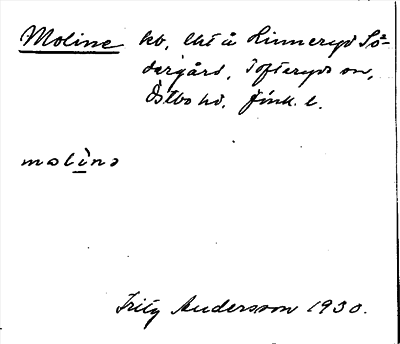 Moline ko, Lht å Hinneryd Sö-
dergård, Tofteryds sn,
Östbo hd, Jönk. l.
molìnə
Fritz Andersson 1930.